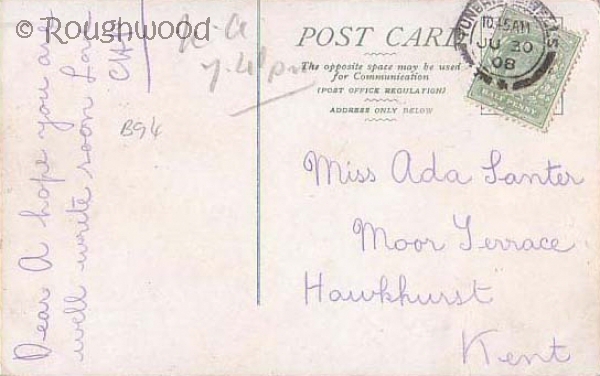 © Roughwood
Dear A hope you are
well write soon Love
B94
POST CARD
The opposite space may be used
for Communication
(POST OFFICE REGULATION)
ADDRESS ONLY BELOW
10.45AM
JU 30
08
HALF PENNY
Miss Ada Santer
Moor Terrace
Hawkhurst
Kent